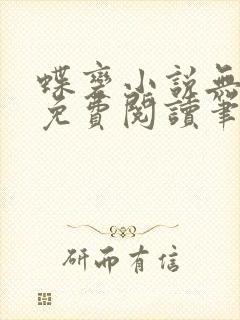 蝶变小説無
免費閱讀筆
研而有信